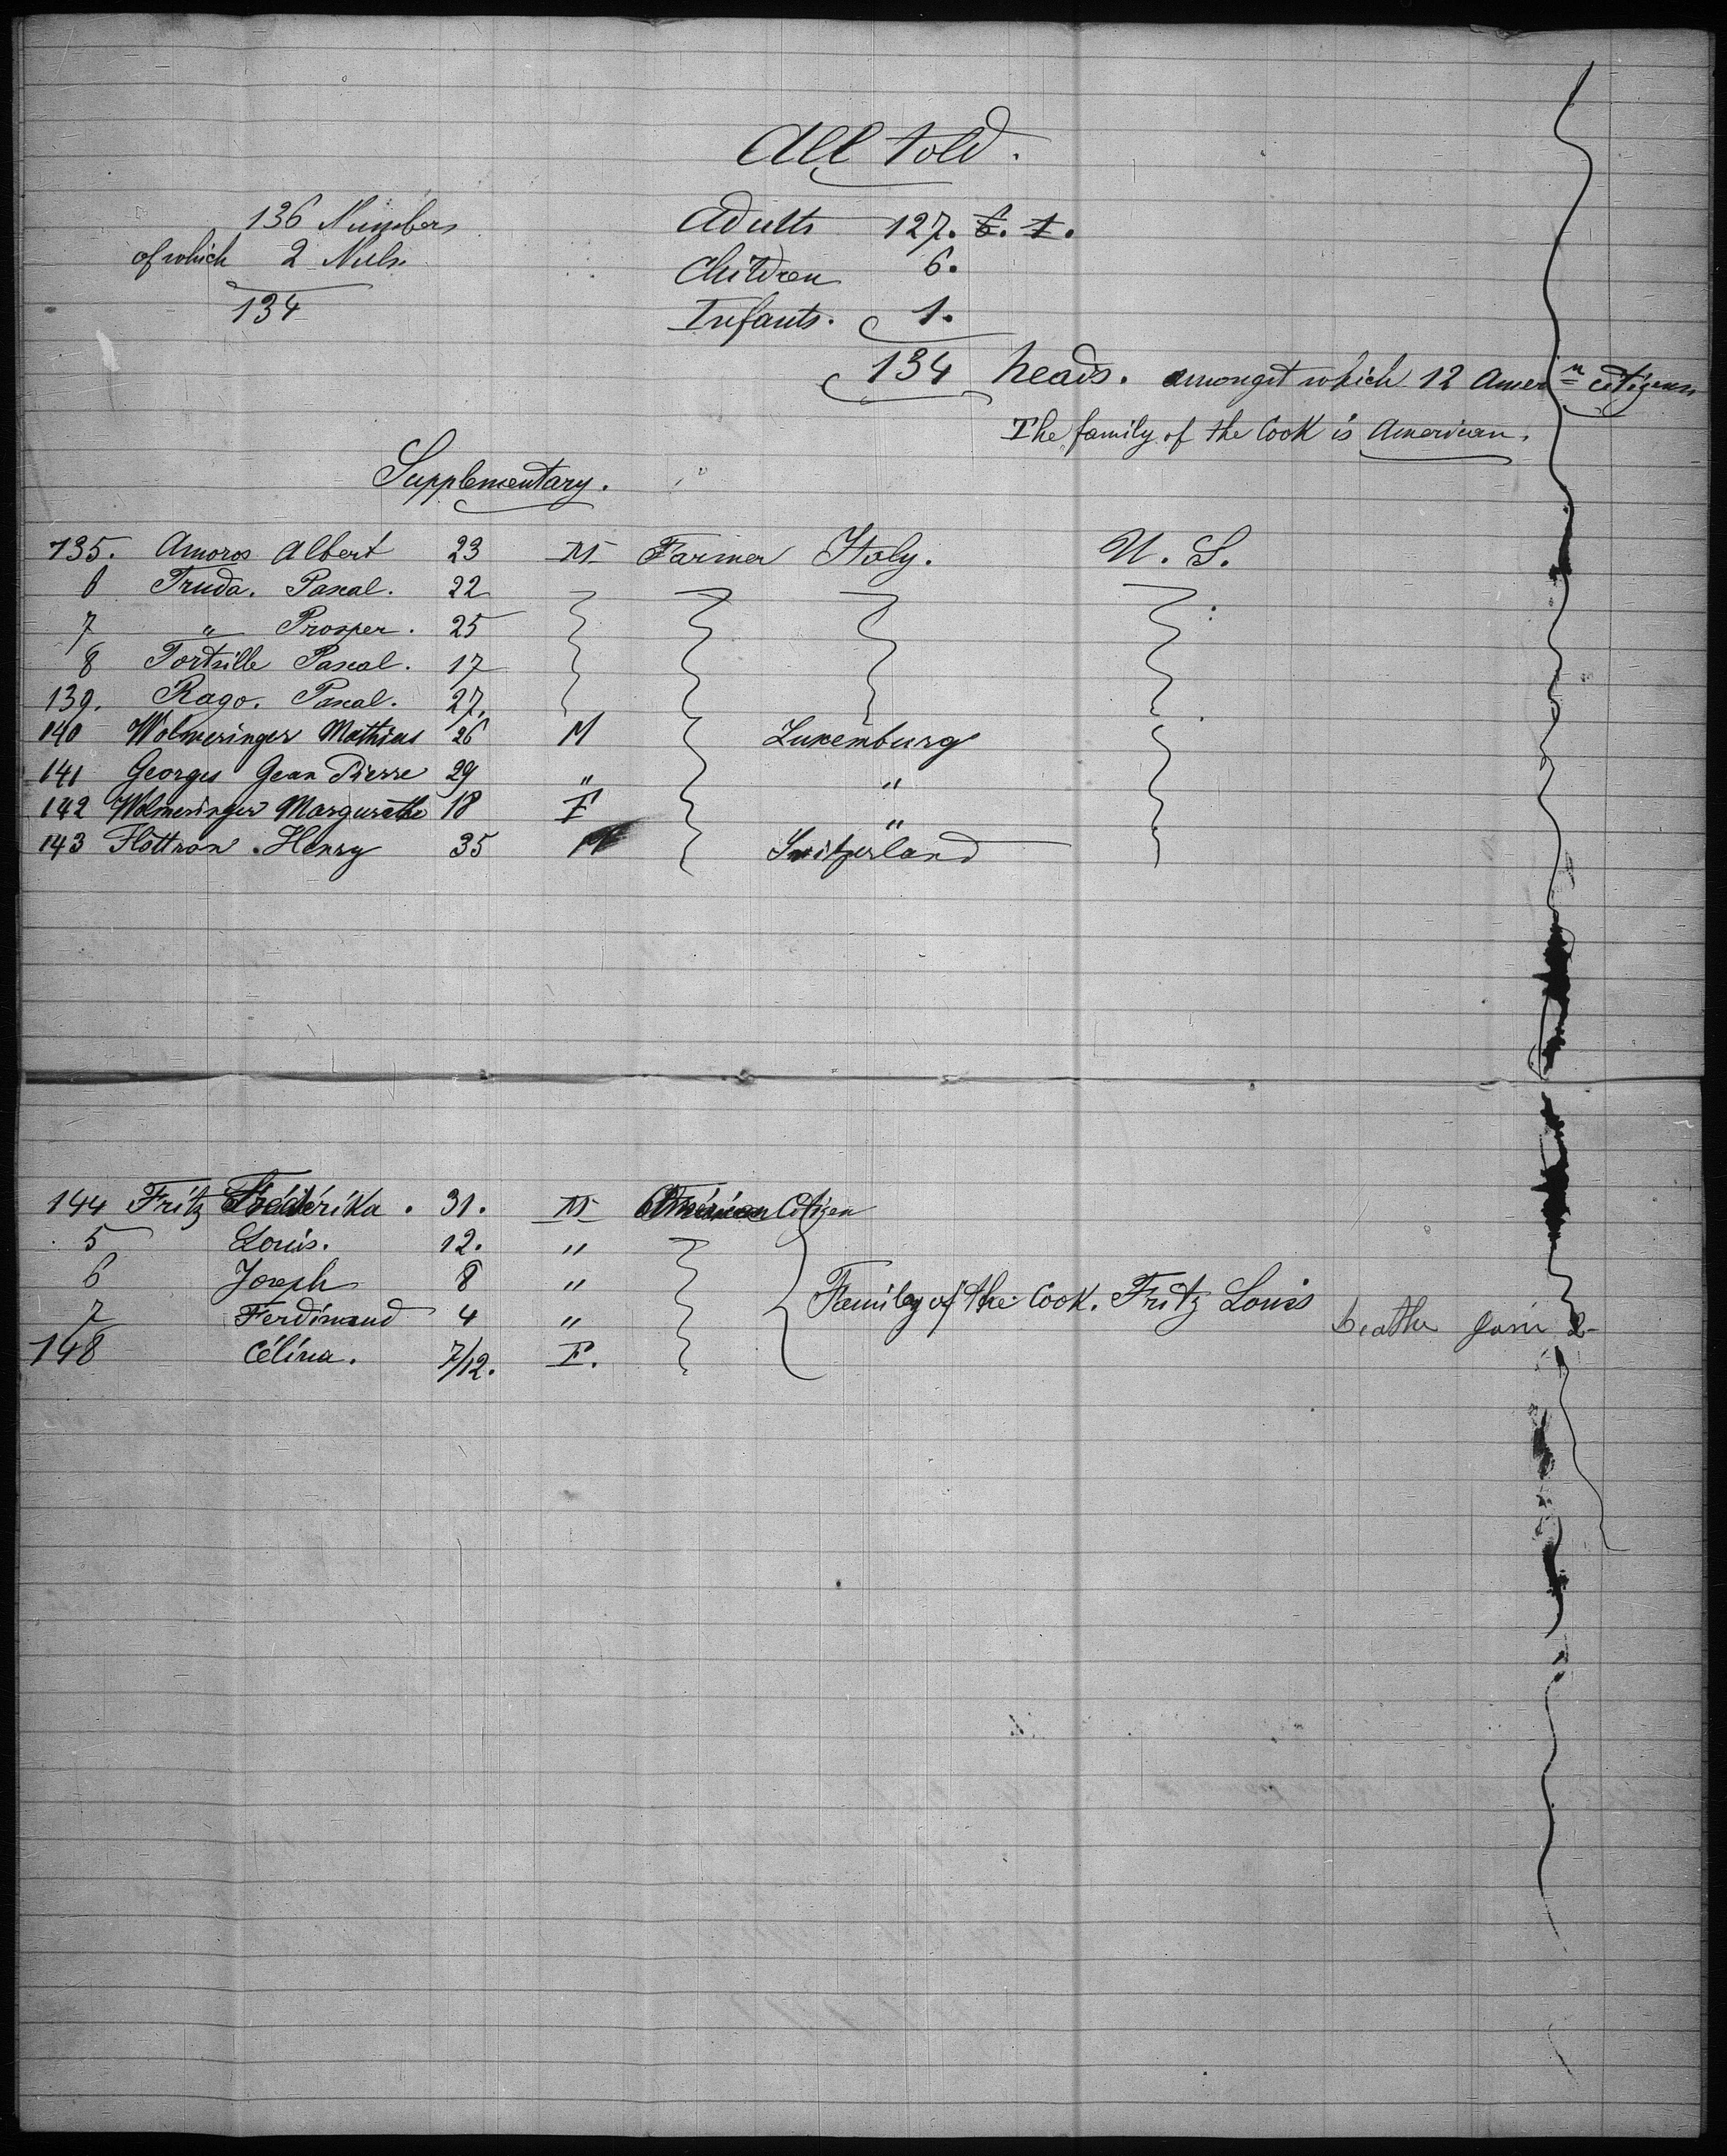 All told.
136 Numbers
of which 2 Nuls.
134
Adults 127. 6. 1.
Children 6.
Infants. 1.
134 heads. amongst which 12 Amern citizens
The family of the Cook is American.
Supplementary.
135. Amoros Albert 23 M Farmer Italy. U. S.
6 Truda. Pascal. 22
7 " Prosper. 25
8 Tortsille Pascal. 17
139. Rago. Pascal. 27.
140 Wolmeringer Mathias 26 M Luxemburg
141 Georges Gean Pierre 29 " "
142 Wolmeringer Margurethe 18 F "
143 Flottron. Henry 35 M Switzerland
144 Fritz Fréderika. 31. M American Citizen
5 Louis. 12. "
6 Joseph 8 "
7 Ferdinand 4 "
148 Célina. 7/12. F.
Family of the Cook. Fritz Louis